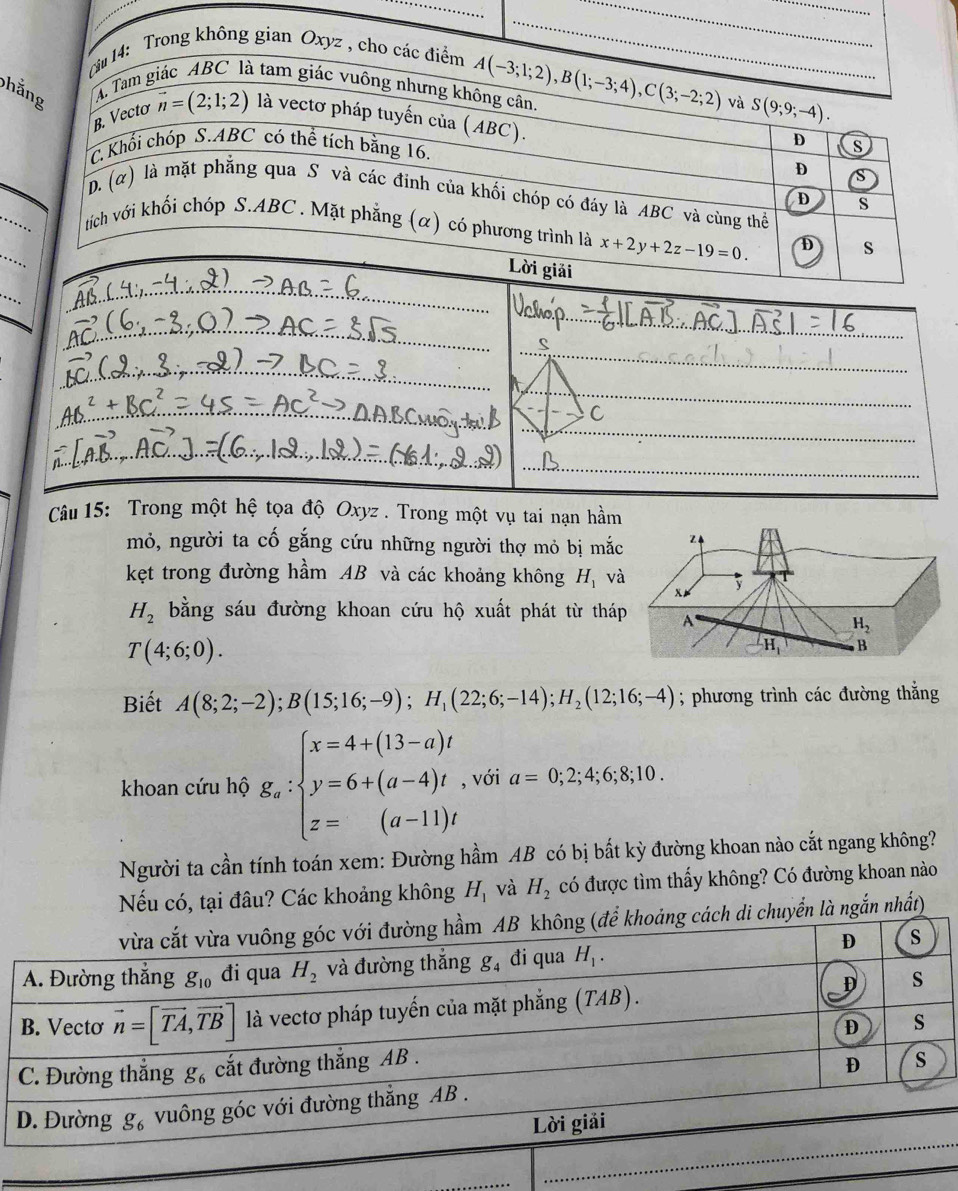 Câu 14: Trong không gian Oxyz , cho các điểm A(−3;1;2), B(1;−3;4), C(3;−2;2) và S(9;9;−4).
A. Tam giác ABC là tam giác vuông nhưng không cân.
Đ S
B. Vectơ n⃗ = (2;1;2) là vectơ pháp tuyến của (ABC).
Đ S
C. Khối chóp S.ABC có thể tích bằng 16.
Đ S
D. (α) là mặt phẳng qua S và các đỉnh của khối chóp có đáy là ABC và cùng thể
tích với khối chóp S.ABC . Mặt phẳng (α) có phương trình là x+2y+2z−19=0.
Đ S
phẳng
Lời giải
AB⃗ (4;−4;2) → AB = 6.
AC⃗ (6;−3;0) → AC = 3√5
BC⃗ (2;3;−2) → BC = 3.
AB² + BC² = 45 = AC² → ΔABC vuông tại B
n⃗=[AB⃗, AC⃗] = (6;12;12) = (1;2;2)
Vchóp = 1/6 |[AB⃗, AC⃗] AS⃗| = 16
S
A
C
B
Câu 15: Trong một hệ tọa độ Oxyz . Trong một vụ tai nạn hầm
mỏ, người ta cố gắng cứu những người thợ mỏ bị mắc
kẹt trong đường hầm AB và các khoảng không H₁ và
H₂ bằng sáu đường khoan cứu hộ xuất phát từ tháp
T(4;6;0).
z
x
y
T
A
H₂
H₁
B
Biết A(8;2;−2); B(15;16;−9); H₁(22;6;−14); H₂(12;16;−4); phương trình các đường thẳng
khoan cứu hộ gₐ : { x = 4+(13−a)t
y = 6+(a−4)t , với a = 0;2;4;6;8;10.
z = (a−11)t
Người ta cần tính toán xem: Đường hầm AB có bị bất kỳ đường khoan nào cắt ngang không?
Nếu có, tại đâu? Các khoảng không H₁ và H₂ có được tìm thấy không? Có đường khoan nào
vừa cắt vừa vuông góc với đường hầm AB không (để khoảng cách di chuyển là ngắn nhất)
A. Đường thẳng g₁₀ đi qua H₂ và đường thẳng g₄ đi qua H₁.
Đ S
B. Vectơ n⃗ = [TA⃗, TB⃗] là vectơ pháp tuyến của mặt phẳng (TAB).
Đ S
C. Đường thẳng g₆ cắt đường thẳng AB .
Đ S
D. Đường g₆ vuông góc với đường thẳng AB .
Đ S
Lời giải